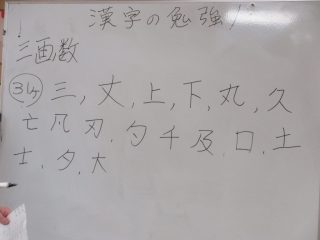 漢字の勉強!
三画数
34ヶ 三, 丈, 上, 下, 丸, 久
亡 凡 刃. 勺 千 及. 口. 土
士. 夕. 大